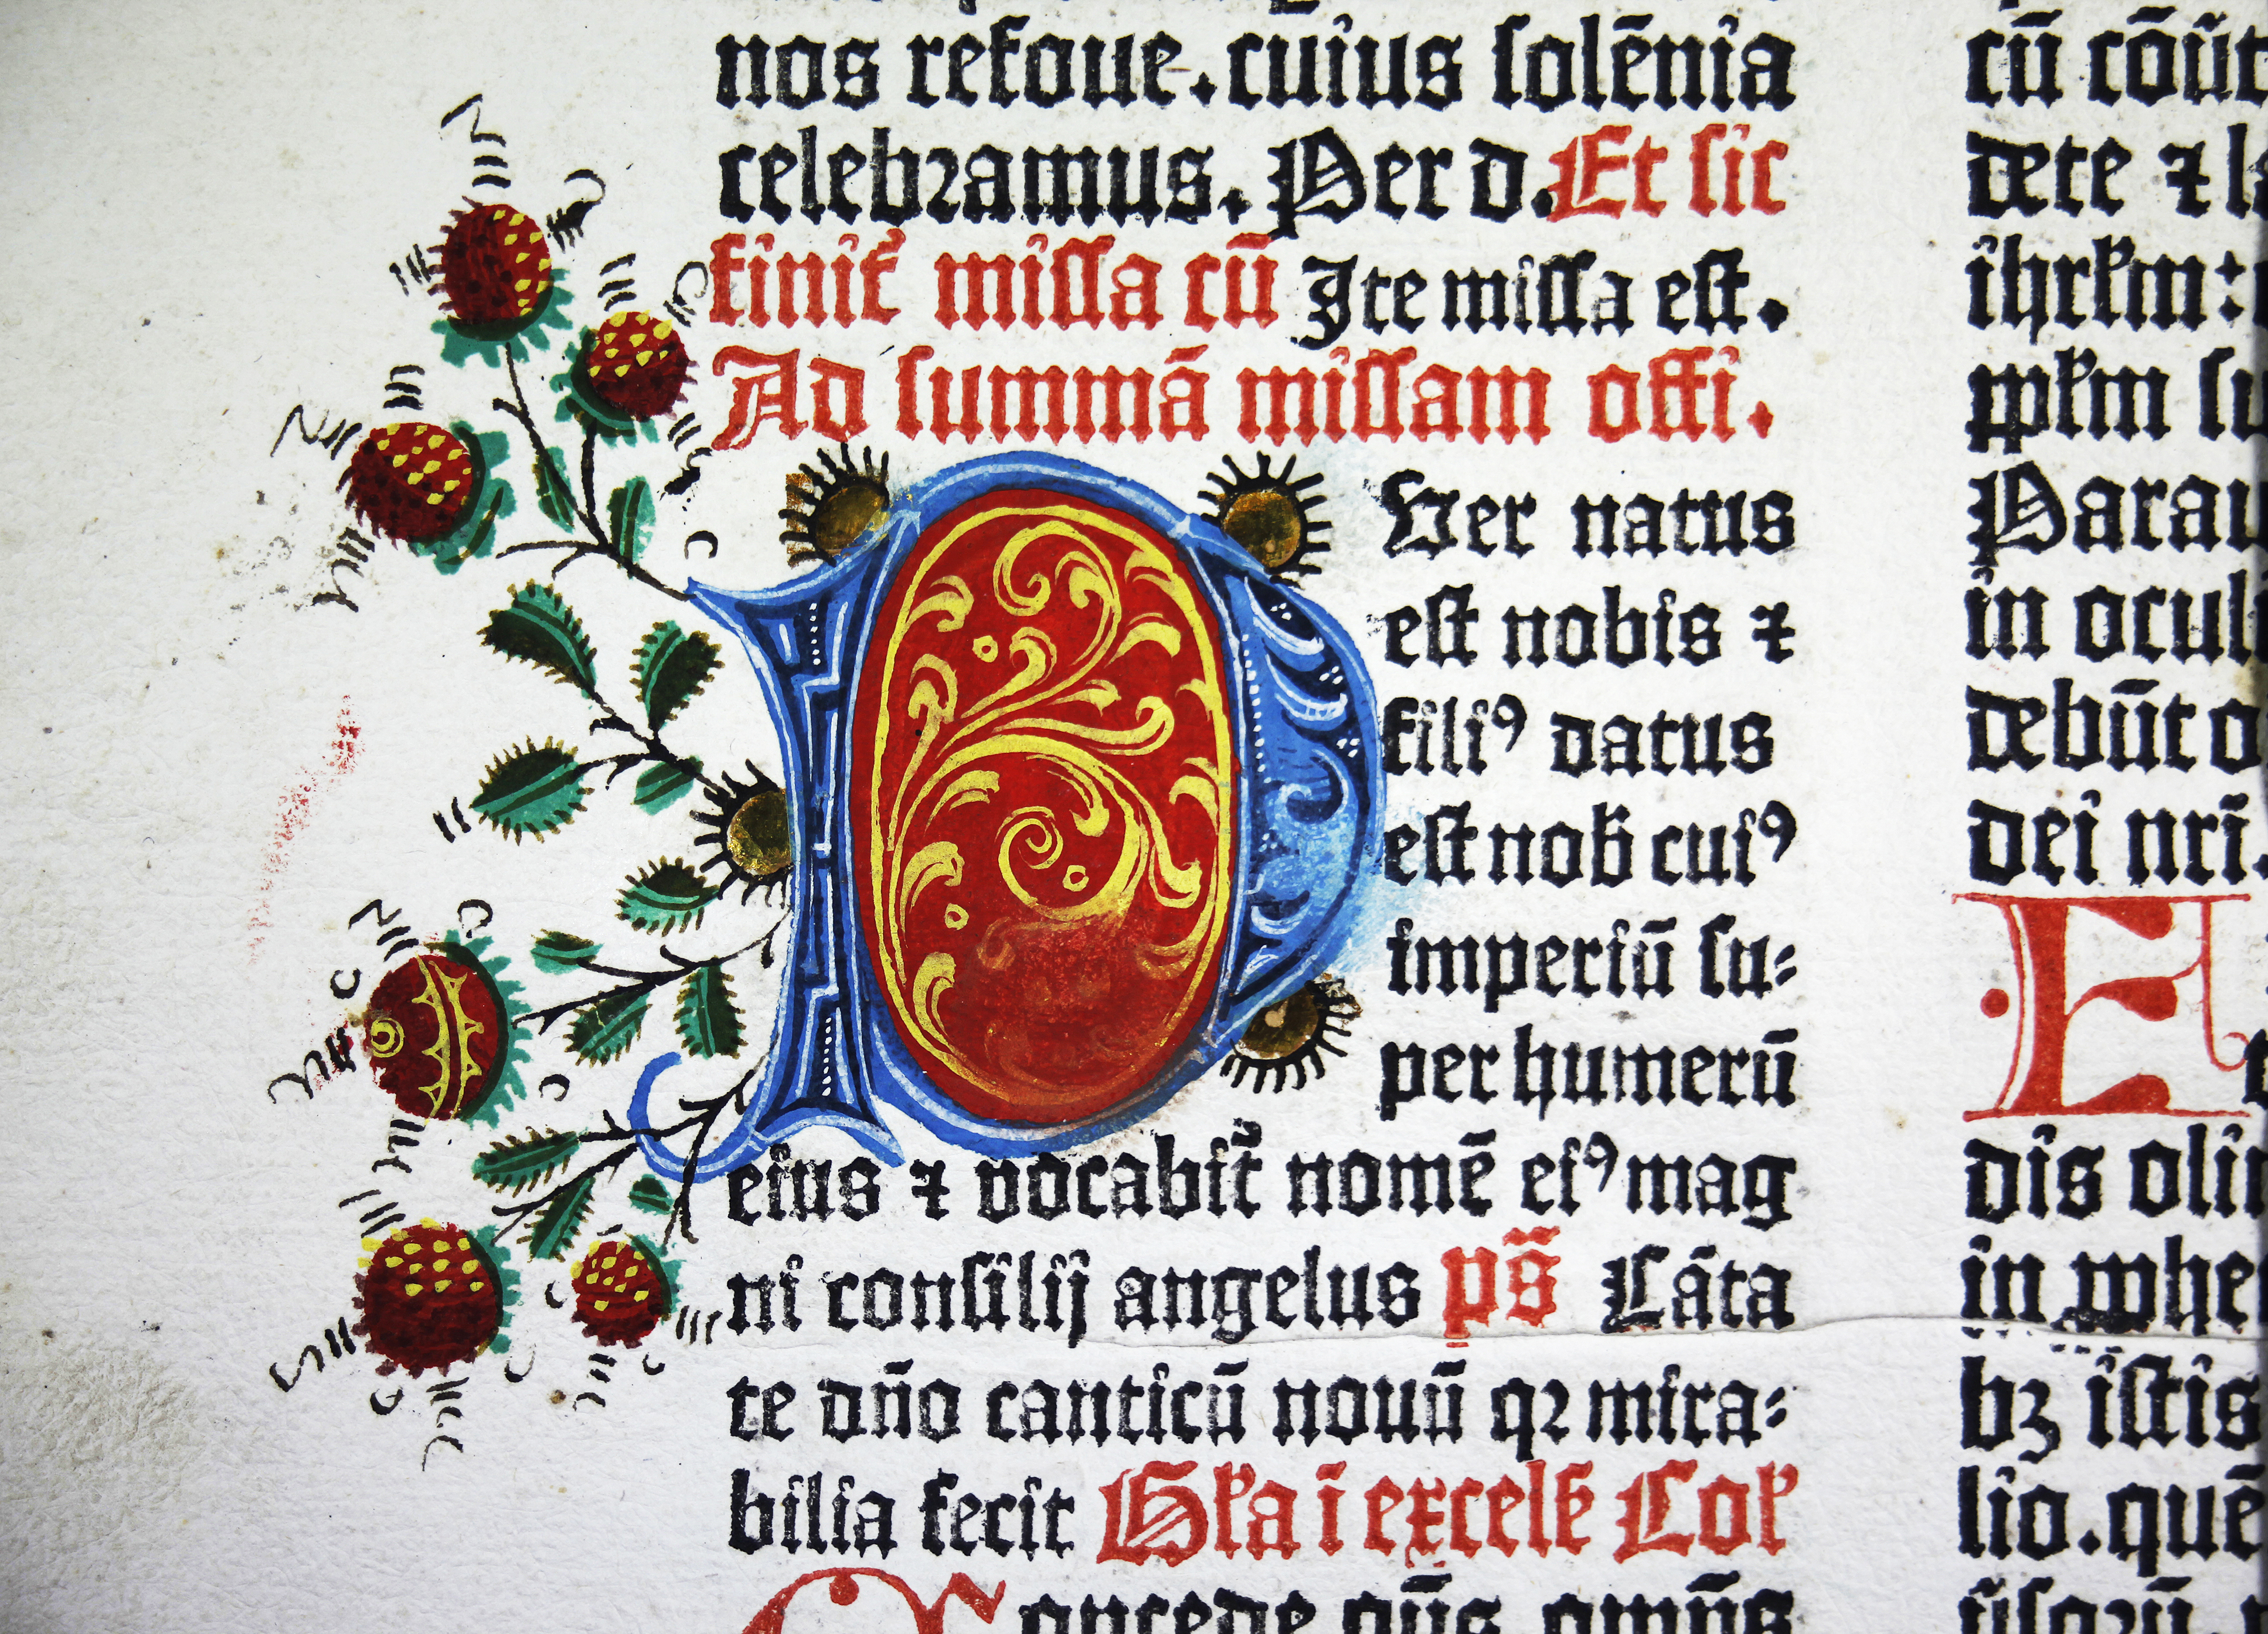 nos refoue. cuius solēnia
celebramus. Per d. Et sic
finit᷑ missa cū Ite missa est.
Ad summā missam offi.
P Uer natus
est nobis ⁊
filiꝰ datus
est nob̄ cuiꝰ
imperiū su⸗
per humerū
eius ⁊ vocabit᷑ nomē eiꝰ mag
ni consilij angelus ps̄ Cāta
te dn̄o canticū nouū qꝛ mira⸗
bilia fecit Gl'a ī excels̄ Col'
Concede qn̄s omn̄s
cū
dete ⁊
ihrl'm:
Parau
in ocul
debūt o
dei nr̄i.
E
dis
in
bꝫ istis
lio. quē